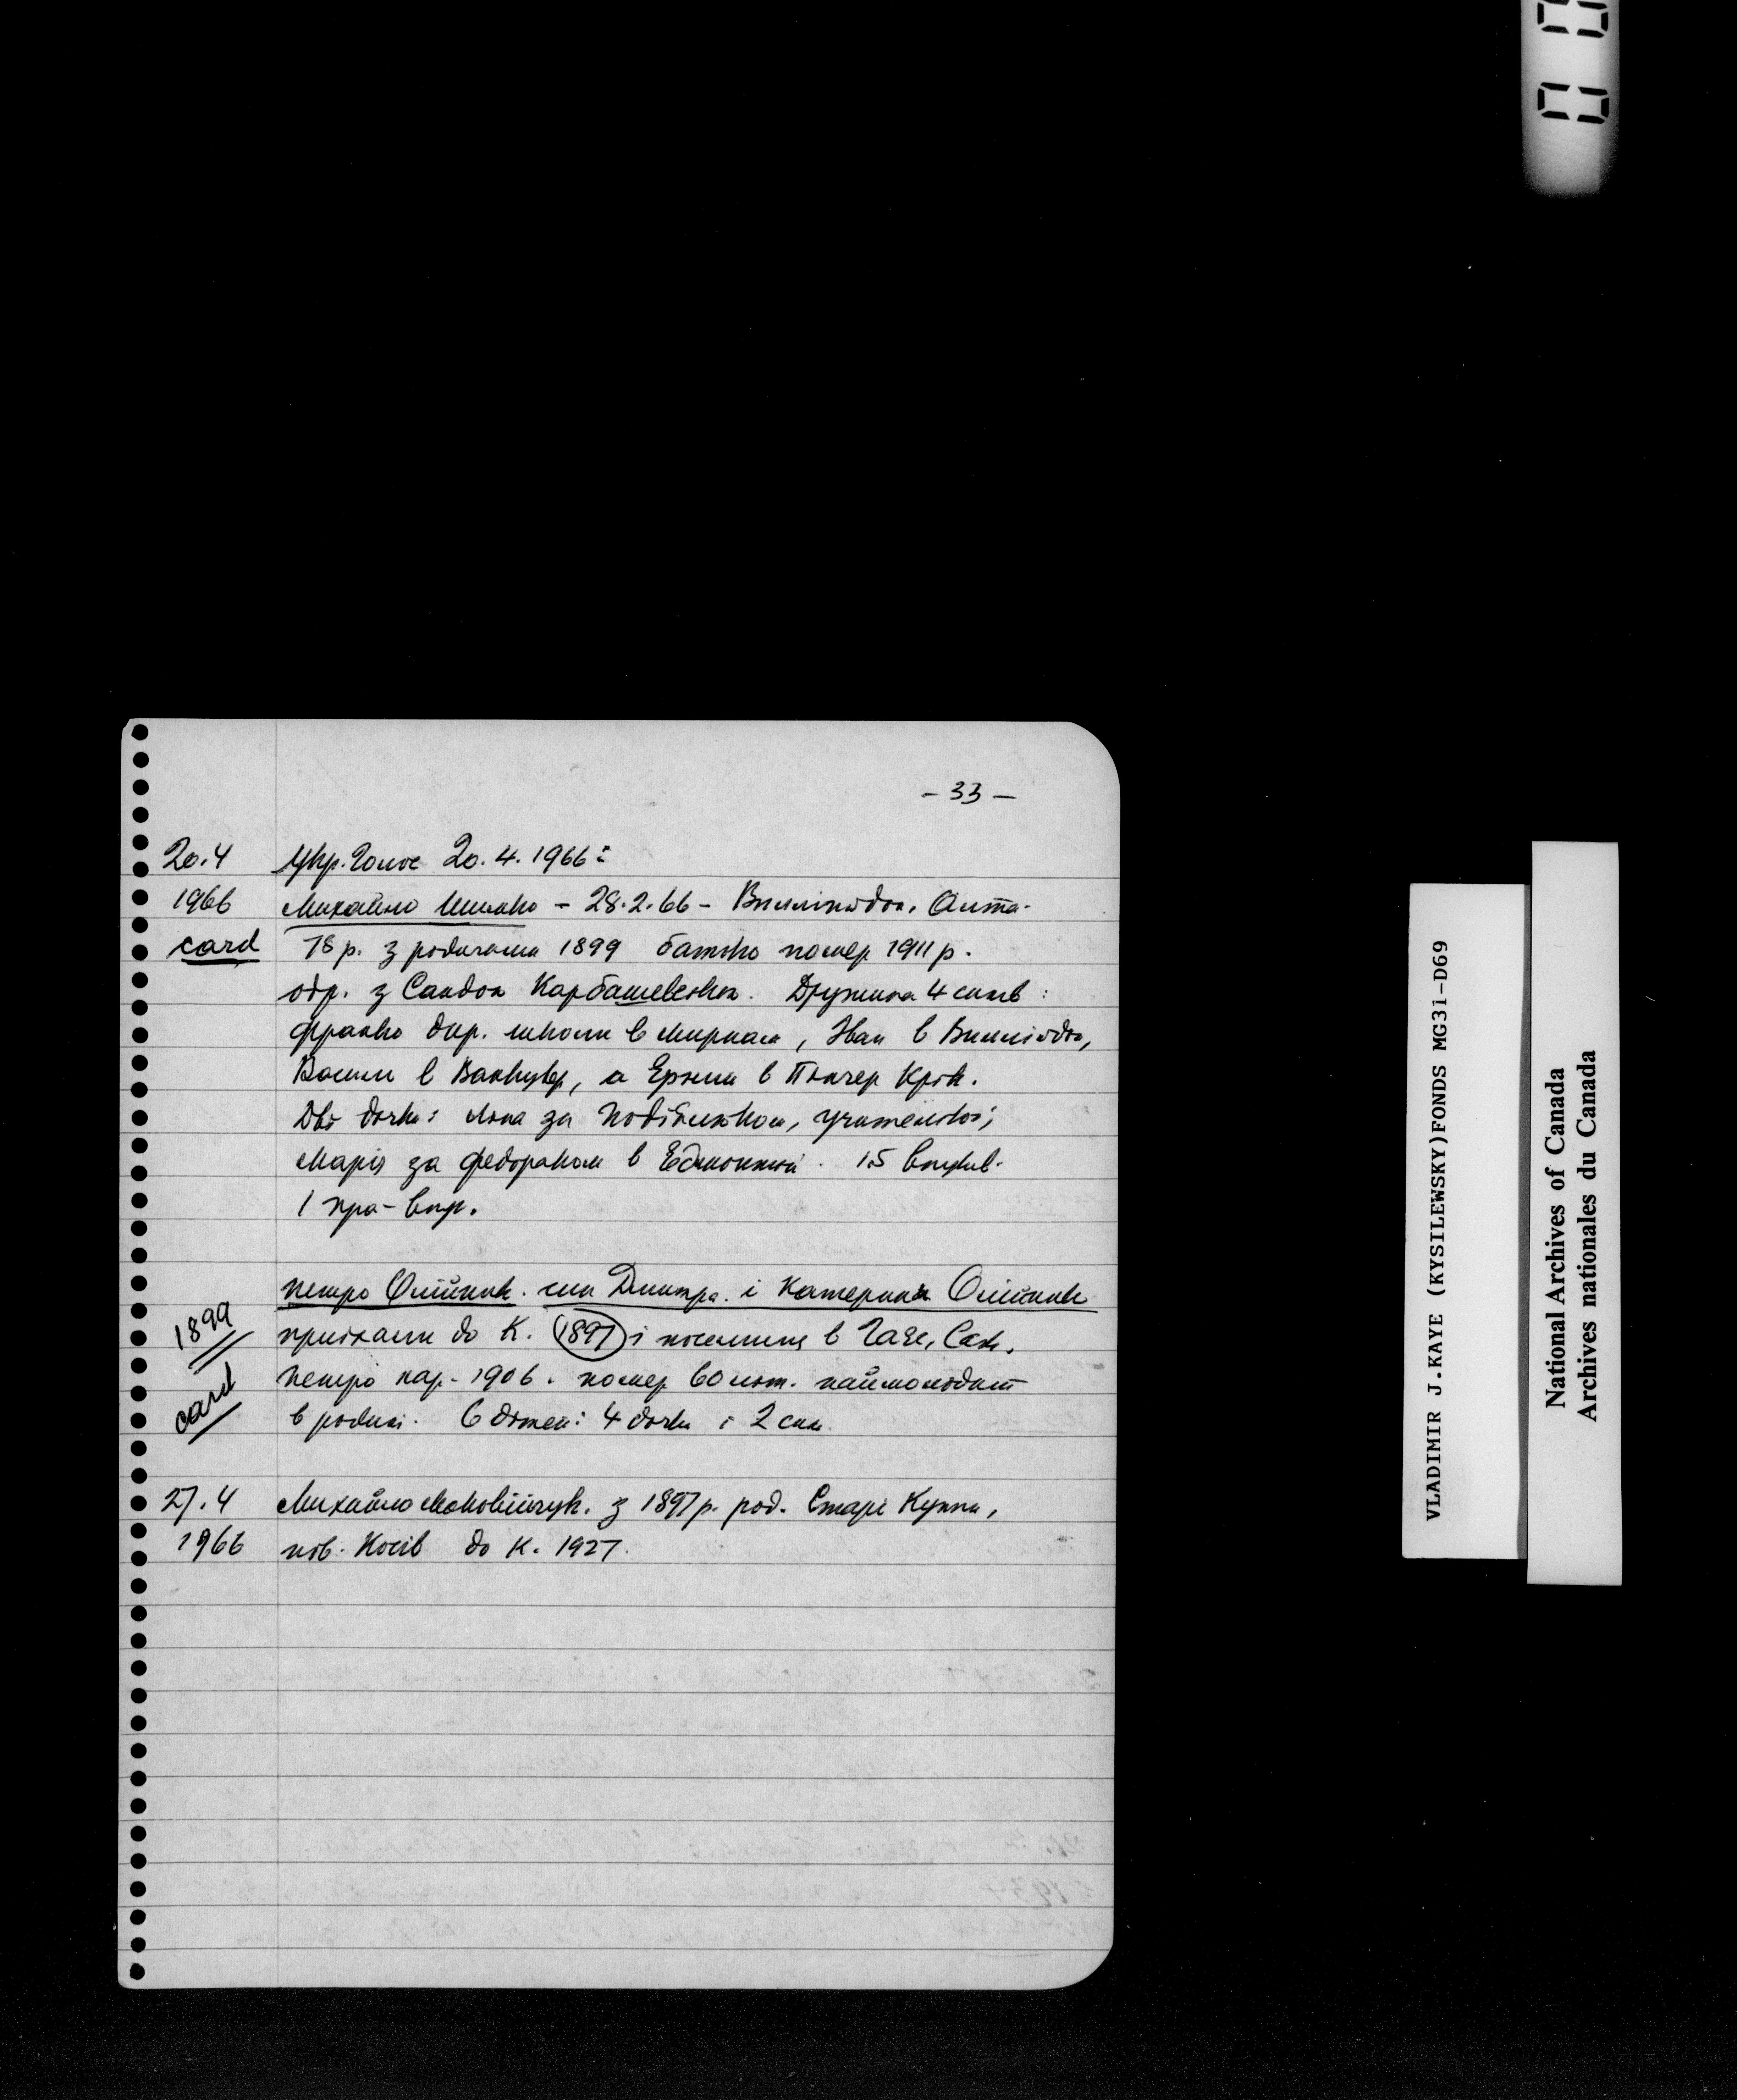 - 33 -
20.4 Укр. Голос 20.4.1966:
1966 Михайло Шишко - 28.2.66 - Виллінґдон, Алта.
card 78 р. з родичами 1899 батько помер 1911 р.
одр. з Сандон Карбашевською. Дружина 4 синів:
Франко дир. школи в Мирнам, Іван в
Василь в Ванкувер, а Ерзли в Пінчер Крік.
Дві дочки: за учителькою;
Марія за Федораком в Едмонтоні. 15 внуків.
1 пра-внук.
Петро Олійник. син Дмитра і Катерини Олійник
1899 приїхали до К. 1897 і поселились в Саск.
card Петро нар. 1906. помер 60 літ. наймолодший
в родині. 6 дітей: 4 дочки і 2 сини.
27.4 Михайло Моковійчук. з 1897 р. род. Старі Кути,
1966 пов. Косів до К. 1927.
VLADIMIR J.KAYE (KYSILEWSKY)FONDS MG31-D69
National Archives of Canada
Archives nationales du Canada